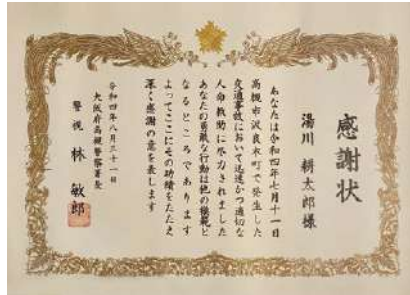 感謝状
湯川 耕太郎様
あなたは令和四年七月十一日
高槻市沢良木町で発生した
交通事故において迅速かつ適切な
人命救助に尽力されました
あなたの勇敢な行動は他の模範と
なるところであります
よってここにその功績をたたえ
深く感謝の意を表します
令和四年八月三十一日
大阪府高槻警察署長
警視 林 敏郎